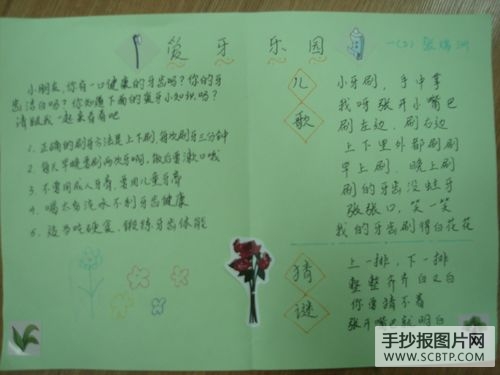 爱牙乐园
一(2) 张
小朋友，你有一口健康的牙齿吗？你的牙
齿洁白吗？你知道下面的爱牙小知识吗？
请跟我一起来看看吧
1. 正确的刷牙方法是上下刷，每次刷牙三分钟
2. 每天早晚要刷两次牙啊，饭后要漱口哦
3. 不要用成人牙膏，要用儿童牙膏
4. 喝太多汽水不利牙齿健康
5. 适当吃硬食，锻炼牙齿体能
儿歌
小牙刷，手中拿
我呀张开小嘴巴
刷左边，刷右边
上下里外都刷刷
早上刷，晚上刷
刷的牙齿没蛀牙
张张口，笑一笑
我的牙齿刷得白花花
猜谜
上一排，下一排
整整齐齐白又白
你要猜不着
张开嘴巴就明白
手抄报图片网
WWW.SCBTP.COM